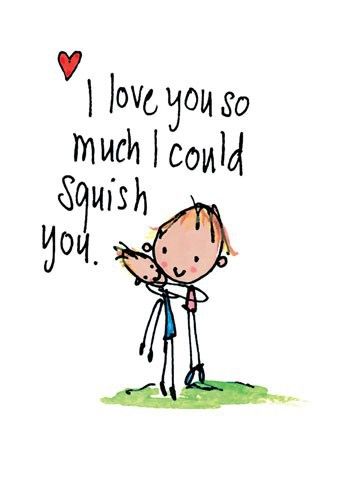 I love you so
much I could
squish
you.